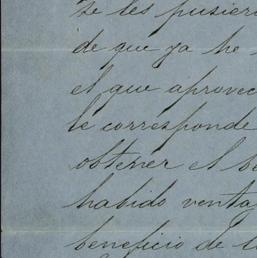 se les pusiero
de que ya he
el que aprovec
le corresponde
obtener el b
habido venta
beneficio de